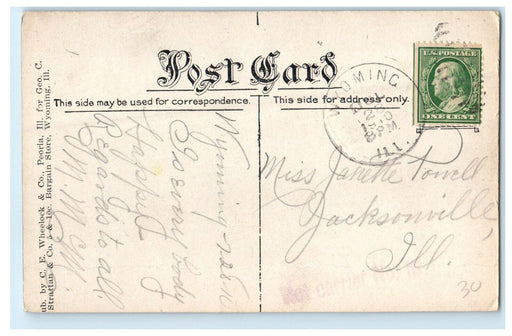 Post Card
This side may be used for correspondence.
This side for address only.
WYOMING
ILL.
U.S. POSTAGE
ONE CENT
ub. by C. E. Wheelock & Co., Peoria, Ill. for Geo. C.
& Co. 5 & 10c. Bargain Store, Wyoming, Ill.
Wyoming
Happy
Regards to all.
M. McM.
Miss Janette Powell
Jacksonville
Ill.
30